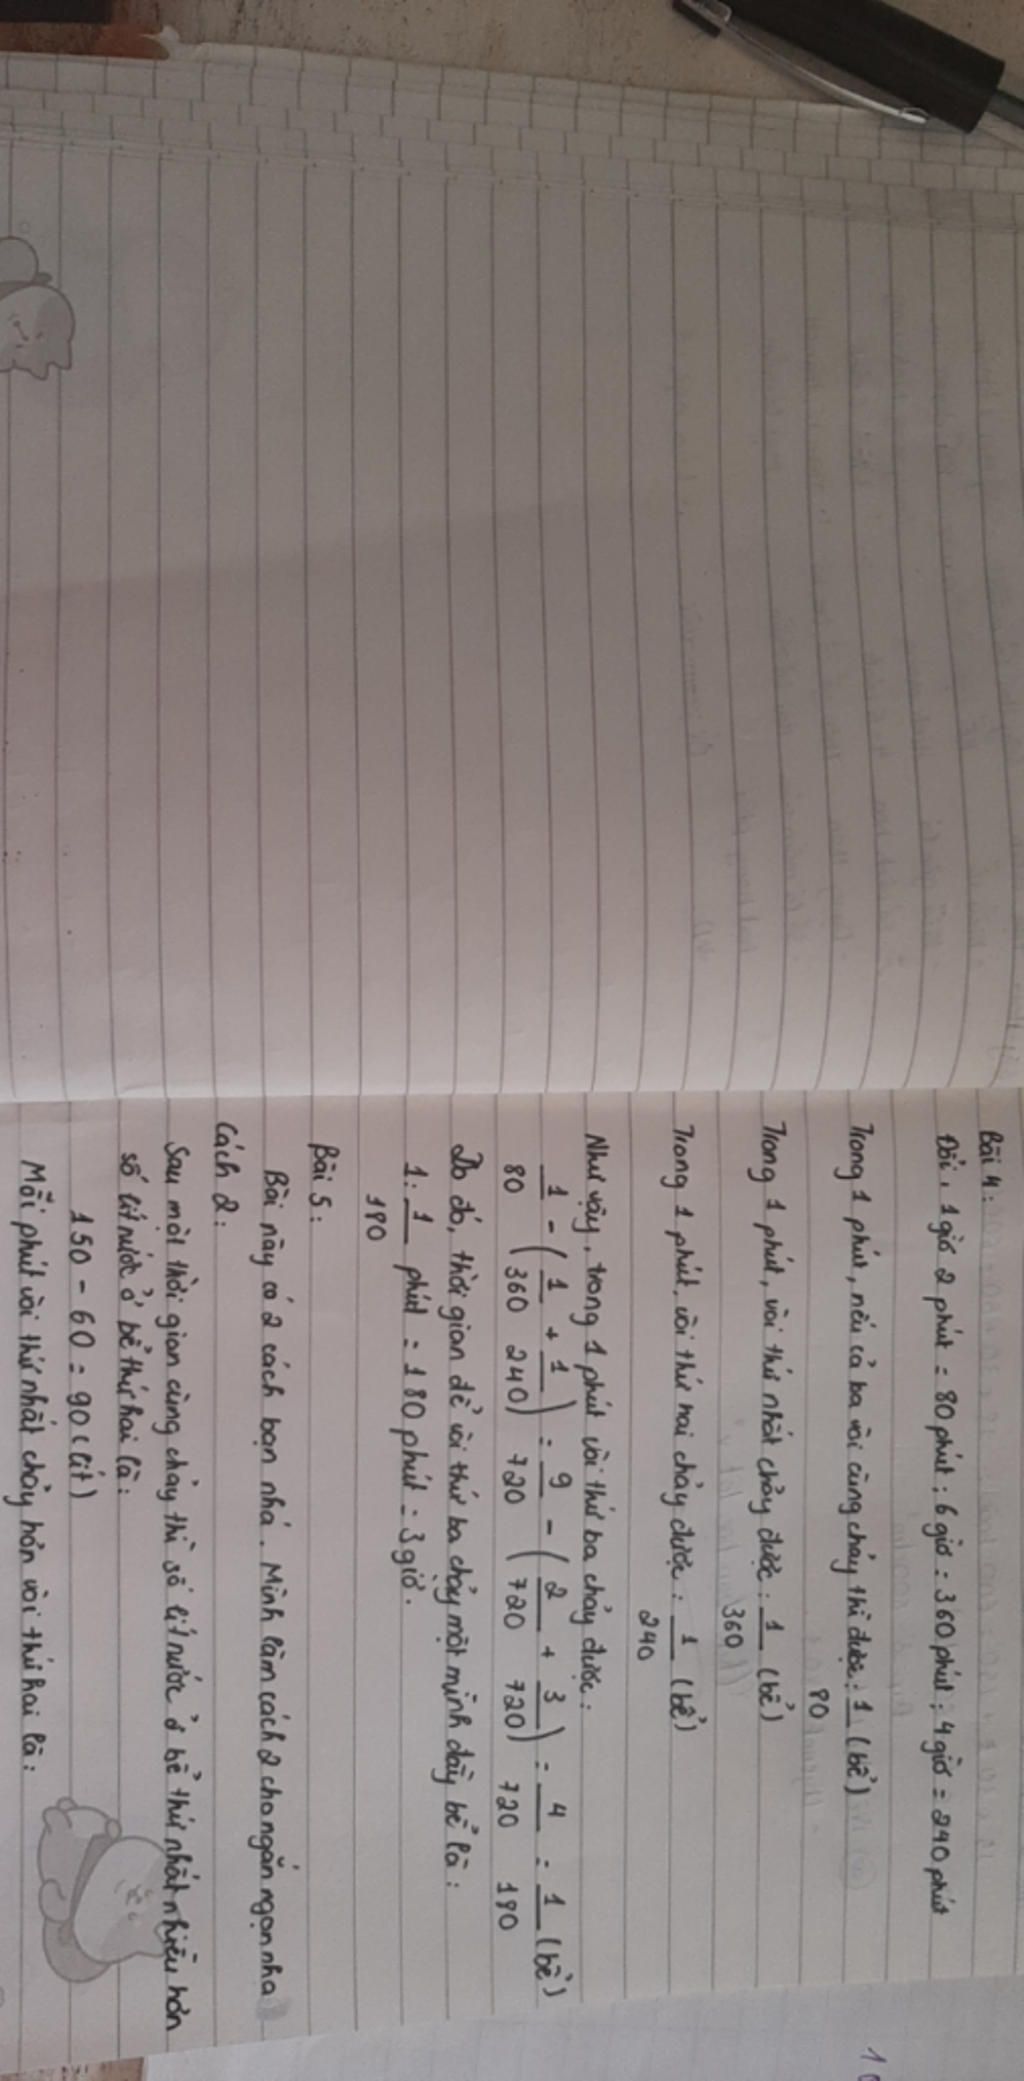 Bài 4:
Đổi, 1 giờ 2 phút = 80 phút; 6 giờ = 360 phút; 4 giờ = 240 phút
Trong 1 phút, nếu cả ba vòi cùng chảy thì được: 1/80 (bể)
Trong 1 phút, vòi thứ nhất chảy được: 1/360 (bể)
Trong 1 phút, vòi thứ hai chảy được: 1/240 (bể)
Như vậy, trong 1 phút vòi thứ ba chảy được:
1/80 - (1/360 + 1/240) = 9/720 - (2/720 + 3/720) = 4/720 = 1/180 (bể)
Do đó, thời gian để vòi thứ ba chảy một mình đầy bể là:
1: 1/180 phút = 180 phút = 3 giờ.
Bài 5:
Bài này có 2 cách bạn nhá. Mình làm cách 2 cho ngắn ngọn nha
Cách 2:
Sau một thời gian cùng chảy thì số lít nước ở bể thứ nhất nhiều hơn
số lít nước ở bể thứ hai là:
150 - 60 = 90 (lít)
Mỗi phút vòi thứ nhất chảy hơn vòi thứ hai là: